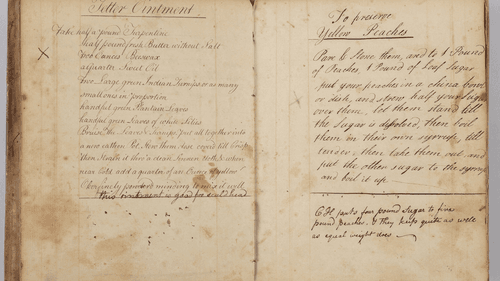 Tetter Ointment
Take half a pound Turpentine
half pound fresh Butter without Salt
two Ounces Beeswax
a quarter Sweet Oil
two Large green Indian Turnips or as many
small ones in proportion
handful green Plantain Leaves
handful green Leaves of white Lilies
Bruise the Leaves & Turnips put all together into
a new earthen
then a clean
near Cold add a quarter of an Ounce of yellow
powdered minding to mix it well
this ointment is good for scald head
To preserve
Yellow Peaches
Pare & Stone them, and to 1 Pound
of Peaches, 1 Pound of Loaf Sugar
put your peaches in a china bowl
or dish, and strew half your sugar
over them. let them stand till
the Sugar is dissolved, then boil
them in their own syrrup till
tender, then take them out, and
put the other sugar to the syrrup
and boil it up
C H puts four pound sugar to five
pound peaches. & they keep quite as well
as equal weight does